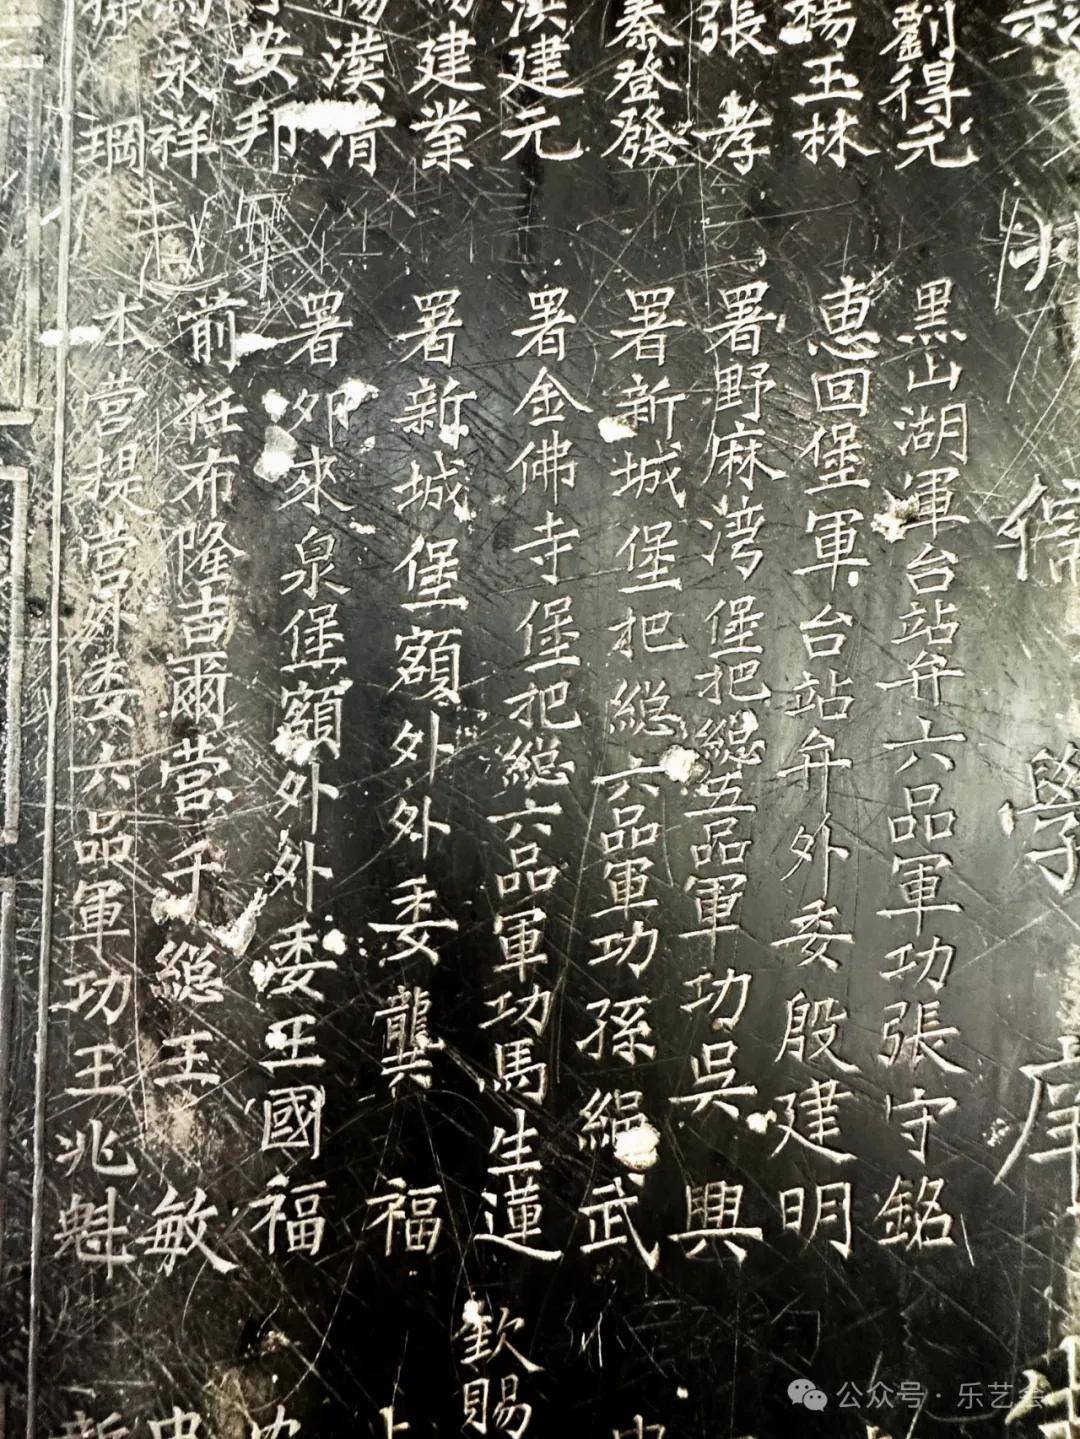 儒學
劉得元
楊玉林
張孝
秦登發
漢建元
建業
漢清
安邦
永祥
黑山湖軍台站弁六品軍功張守銘
惠回堡軍台站弁外委殷建明
署野麻湾堡把總五品軍功吳興
署新城堡把総六品軍功孫繩武
署金佛寺堡把総六品軍功馬生蓮
署新城堡額外外委龔福
署夘來泉堡額外外委王國福
前任布隆吉爾營千総王敏
本營提營外委六品軍功王兆魁
欽賜
公众号·乐艺会